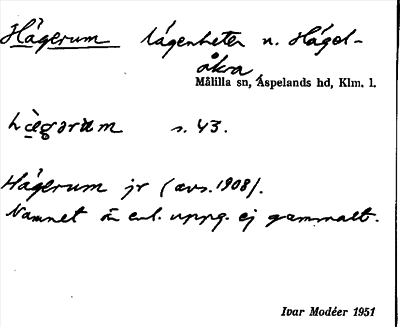 Hägerum lägenheter u. Hägel-
åkra
Målilla sn, Aspelands hd, Klm. l.
s. 43.
Hägerum jr (avs. 1908).
Namnet är enl. uppg. ej gammalt.
Ivar Modéer 1951